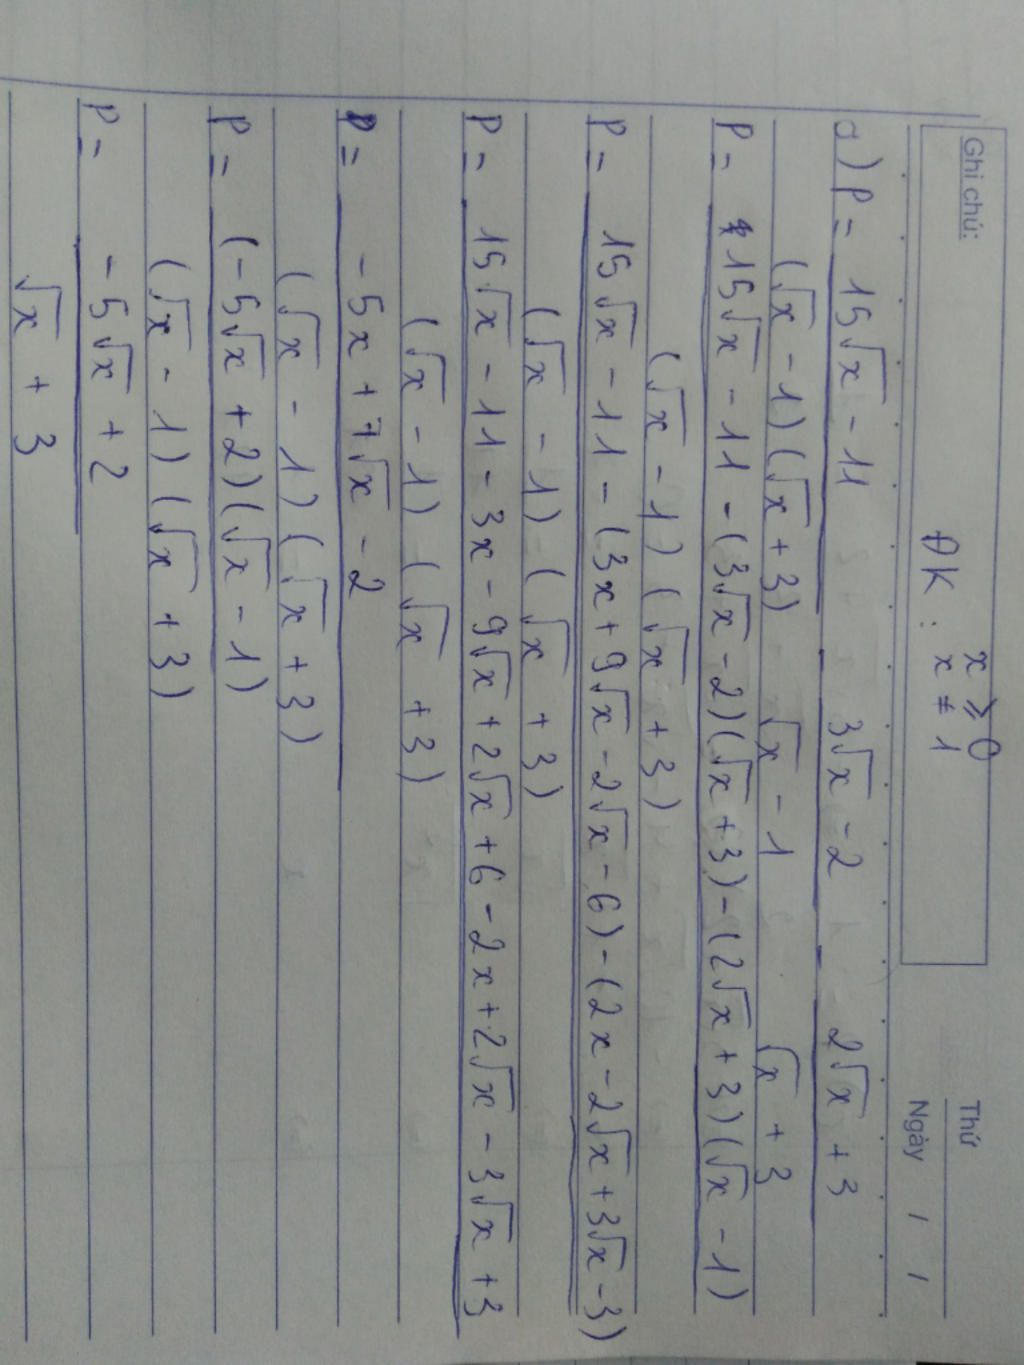 Ghi chú:
Thứ
Ngày / /
x ≥ 0
ĐK : x ≠ 1
a) P = 15√x - 11 / (√x - 1)(√x + 3) - 3√x - 2 / √x - 1 - 2√x + 3 / √x + 3
P = 15√x - 11 - (3√x - 2)(√x + 3) - (2√x + 3)(√x - 1)
(√x - 1)(√x + 3)
P = 15√x - 11 - (3x + 9√x - 2√x - 6) - (2x - 2√x + 3√x - 3)
(√x - 1)(√x + 3)
P = 15√x - 11 - 3x - 9√x + 2√x + 6 - 2x + 2√x - 3√x + 3
(√x - 1)(√x + 3)
P = - 5x + 7√x - 2
(√x - 1)(√x + 3)
P = (-5√x + 2)(√x - 1)
(√x - 1)(√x + 3)
P = - 5√x + 2
√x + 3